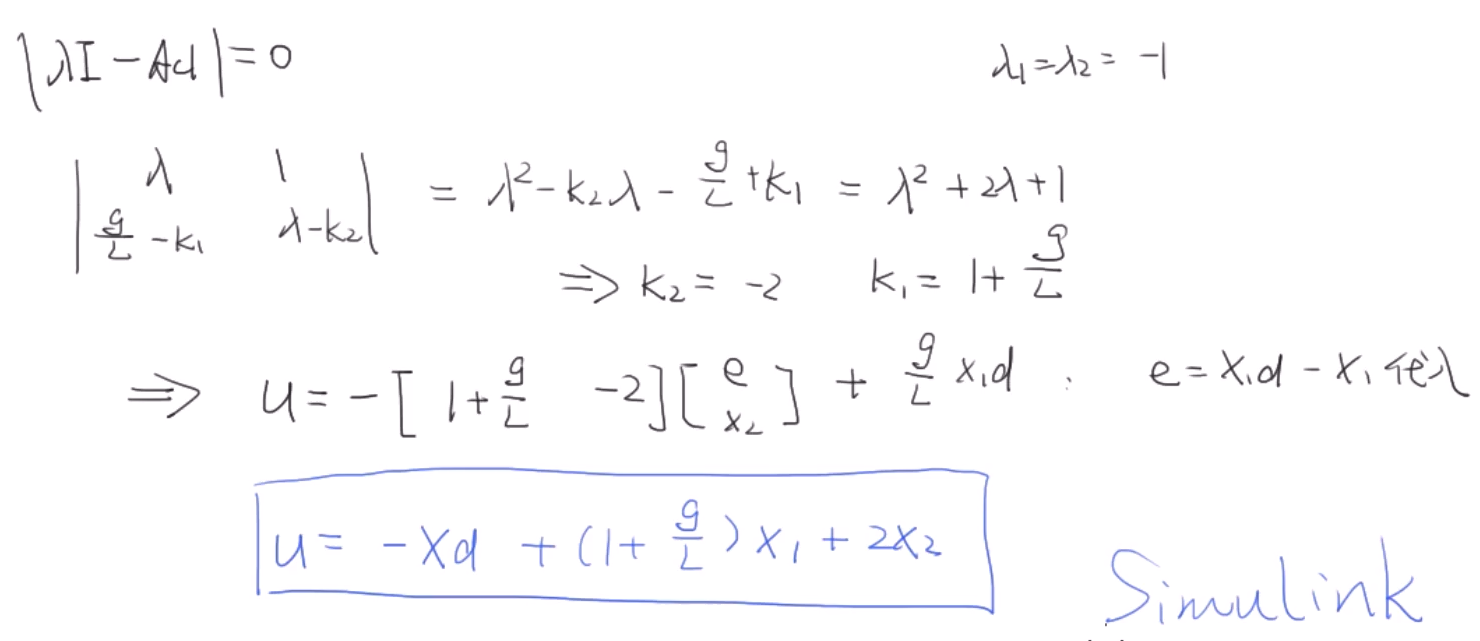 |λI - Acl| = 0    λ₁ = λ₂ = -1
| λ    1 |
| g/L - k₁    λ - k₂ | = λ² - k₂λ - g/L + k₁ = λ² + 2λ + 1
⇒ k₂ = -2    k₁ = 1 + g/L
⇒ u = -[1 + g/L    -2][e x₂] + g/L x₁d    e = x₁d - x₁ 代入
u = -xd + (1 + g/L) x₁ + 2x₂
Simulink